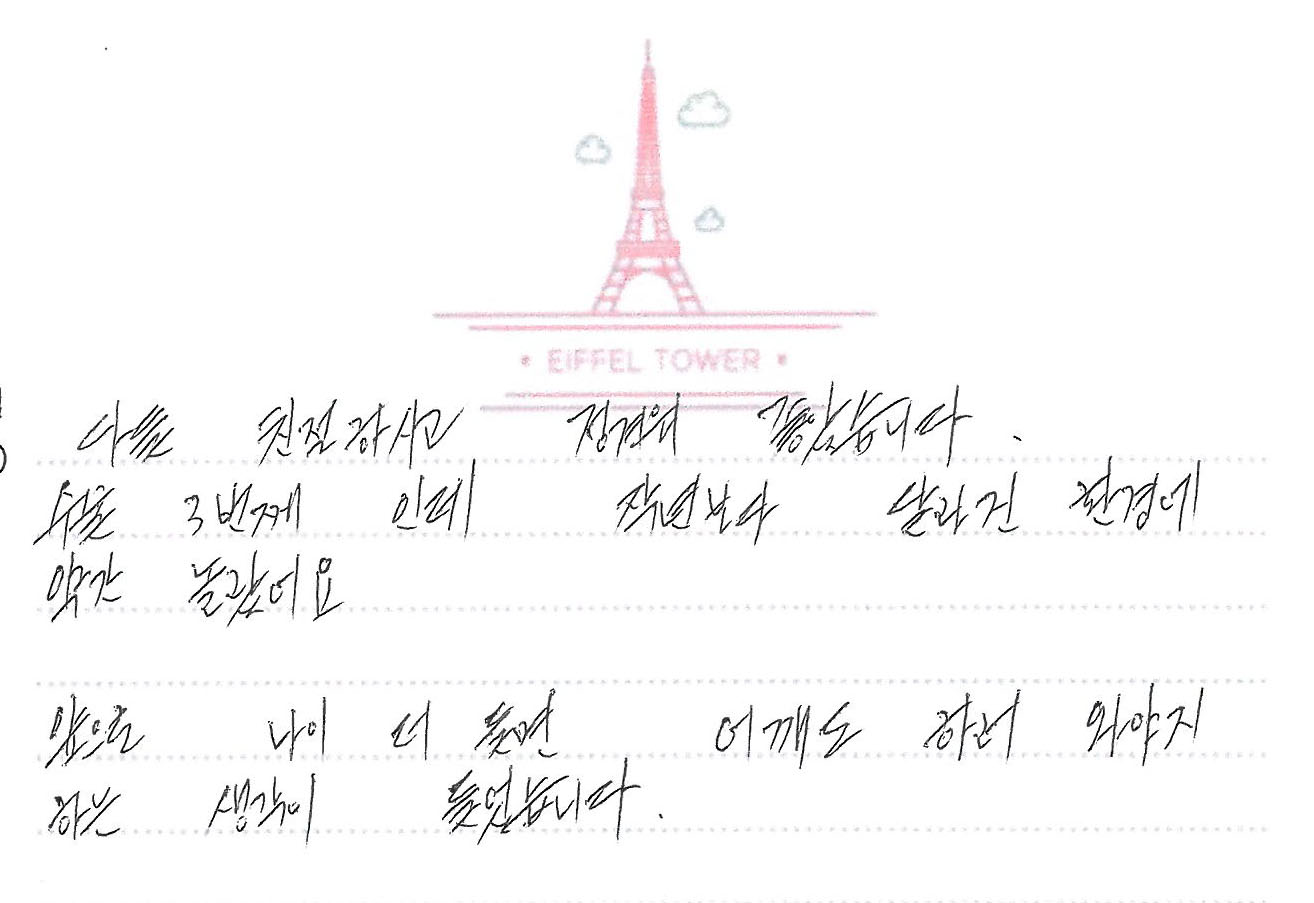 • EIFFEL TOWER •
다들 친절하사고 정겨워 좋았습니다.
3번째 인데 작년보다 달라진 환경에
약간 놀랐어요
앞으로 나이 더 들면 어깨도 하러 와야지
하는 생각이 들었습니다.